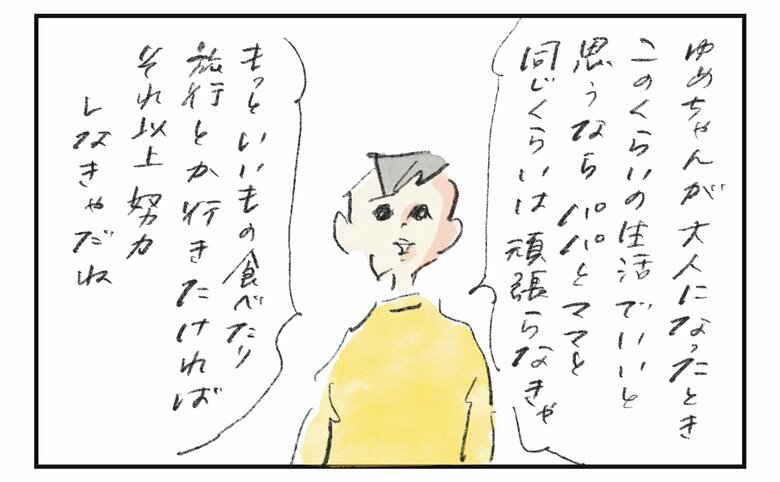 ゆめちゃんが大人になったとき
このくらいの生活でいいと
思うならパパとママと
同じくらいは頑張らなきゃ
もっといいもの食べたり
旅行とか行きたければ
それ以上努力
しなきゃだね